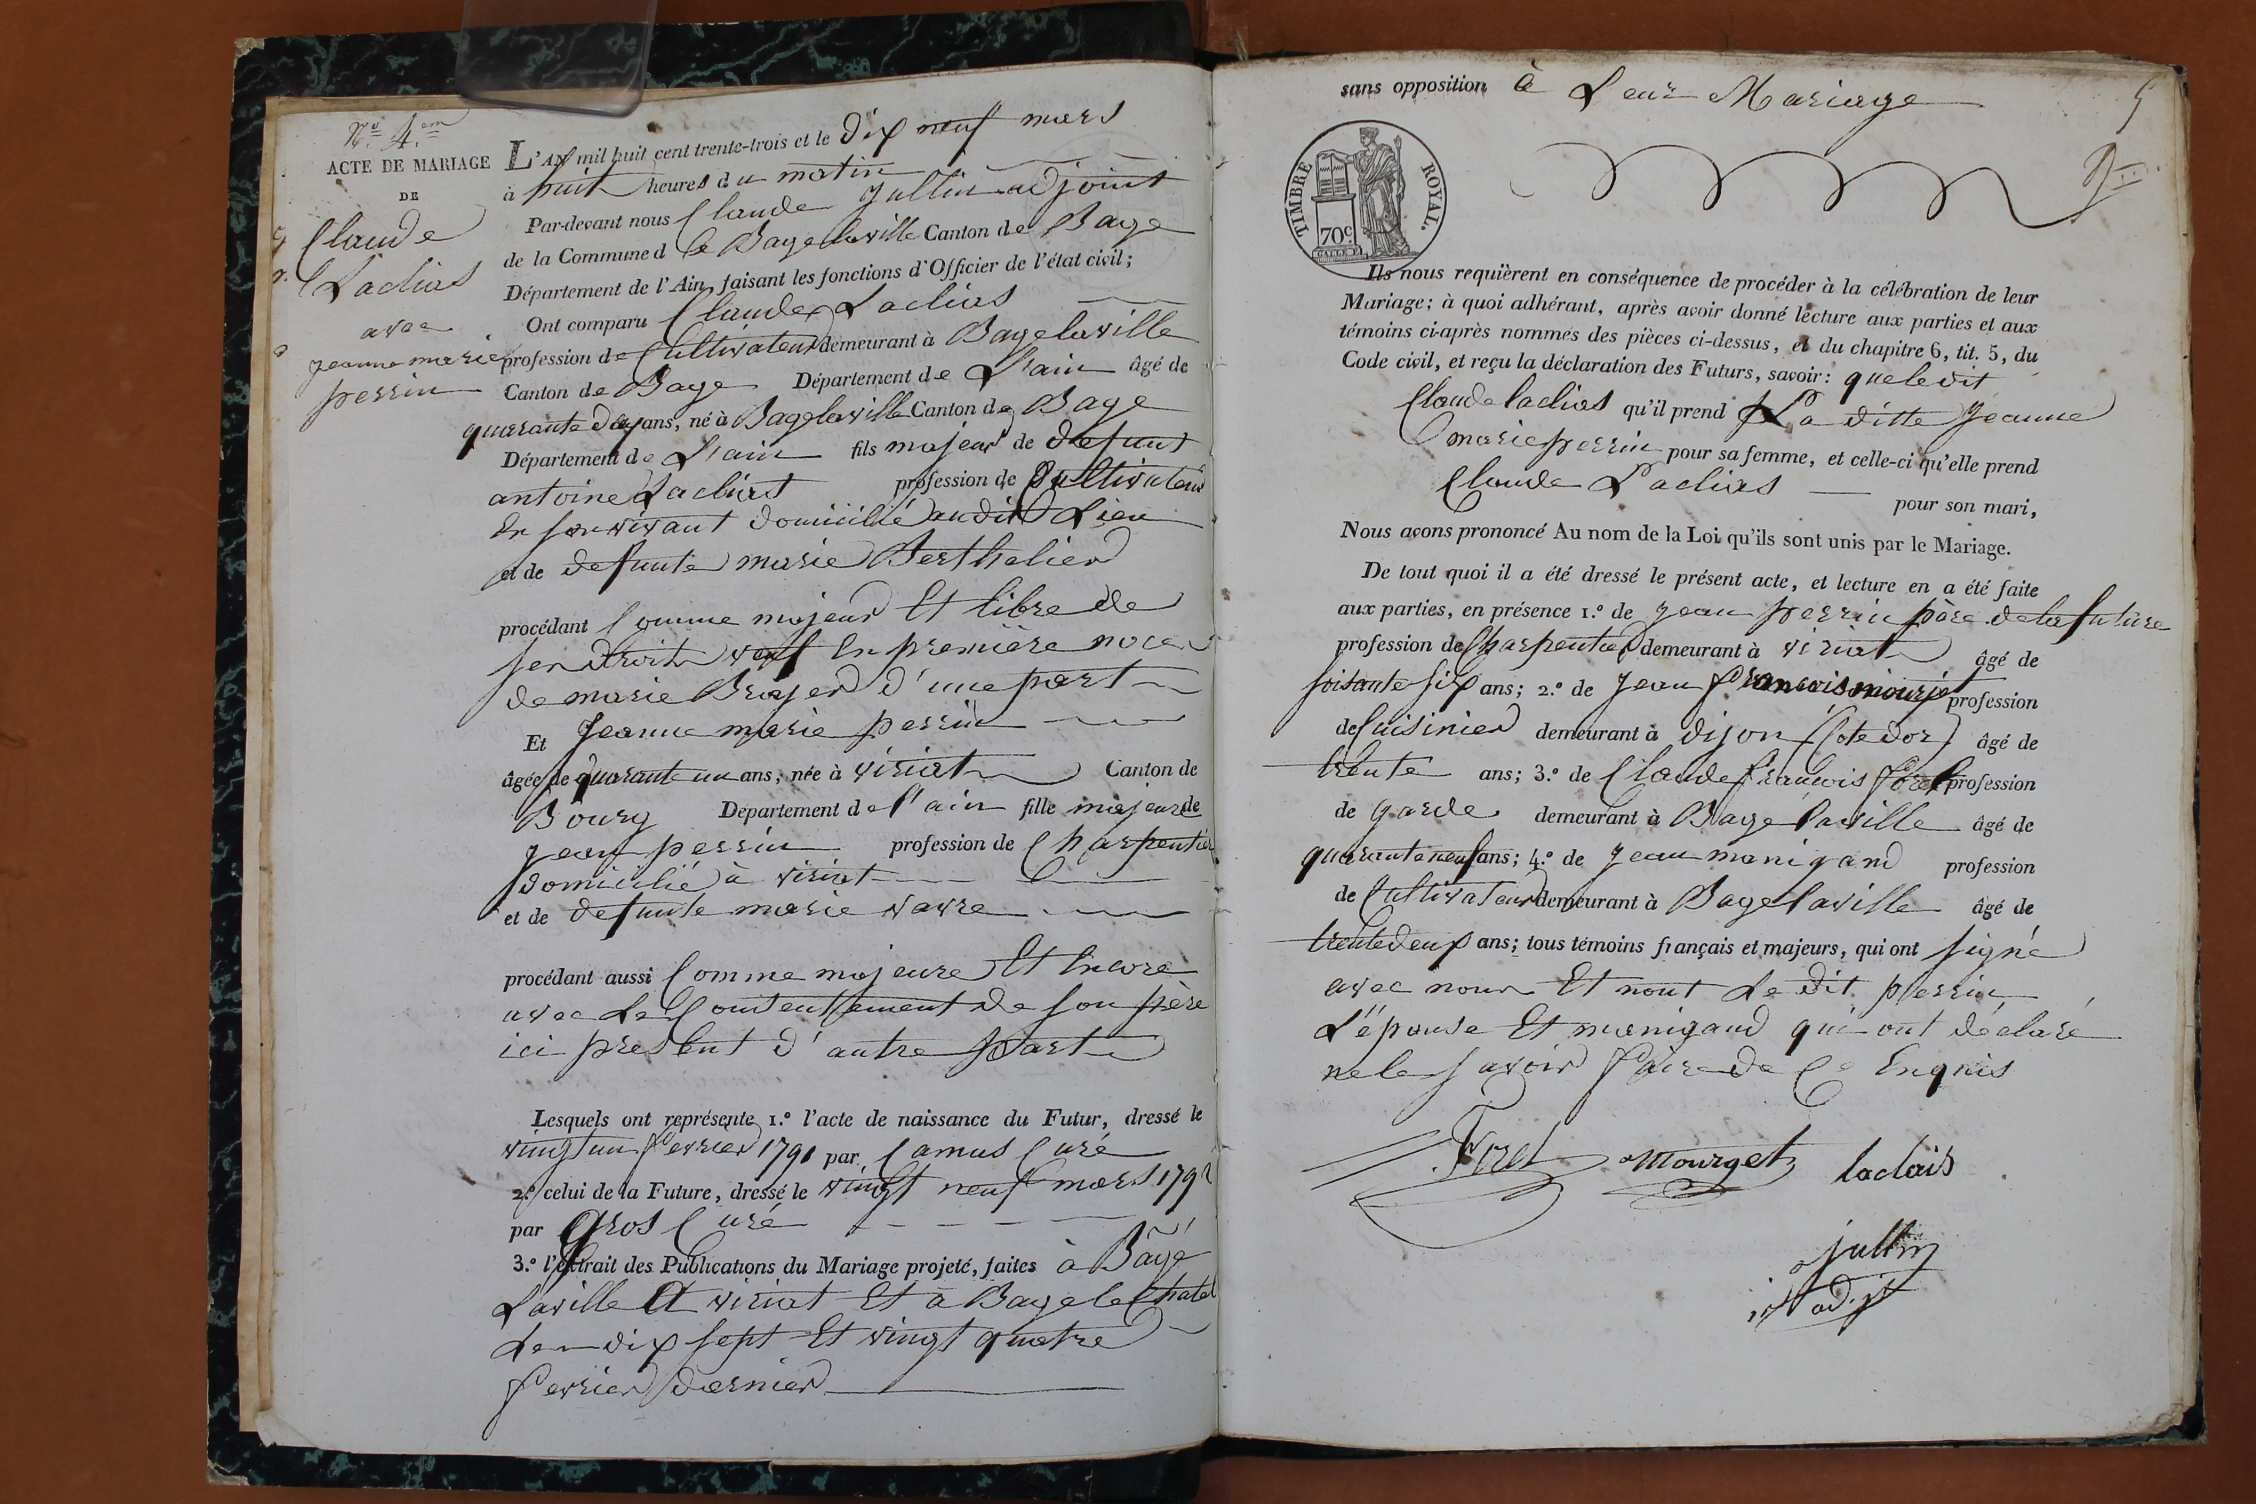 N.º 4.em
ACTE DE MARIAGE
DE
Claude
Laclias
avec
jeanne marie
perrin
L'AN mil huit cent trente-trois et le dix neuf mars
à huit heures du matin
Par-devant nous Claude jullin adjoint
de la Commune d le Bagelaville Canton de Bage
Département de l'Ain, faisant les fonctions d'Officier de l'état civil;
Ont comparu Claude Laclias
profession de Cultivateur demeurant à Bagelaville
Canton de Bage Département de L'ain âgé de
quarante deux ans, né à Bagelaville Canton de Bage
Département de L'ain fils majeur de defunt
antoine Lacliast profession de Cultivateur
En son vivant domicilié audit Lieu
et de defunte marie Berthelier
procédant Comme majeur Et libre de
ses droits veuf En première noces
de marie Broyer d'une part
Et Jeanne marie perrin
âgée de quarante un ans, née à viriat Canton de
Bourg Département de l'ain fille majeur de
jean perrin profession de Charpentier
domicilié à viriat
et de defunte marie vavre
procédant aussi Comme majeure Et Encore
avec Le Consentement de son père
ici present d'autre part
Lesquels ont représente 1.º l'acte de naissance du Futur, dressé le
vingt un fevrier 1791 par Camus Curé
2.º celui de la Future, dressé le vingt neuf mars 1792
par Gros Curé
3.º l'extrait des Publications du Mariage projeté, faites à Bagé
Laville Et viriat Et à Bage le Chatel
Les dix sept Et vingt quatre
fevrier dernier
sans opposition à Leur Mariage
5
TIMBRE ROYAL.
70c.
Ils nous requièrent en conséquence de procéder à la célébration de leur
Mariage; à quoi adhérant, après avoir donné lecture aux parties et aux
témoins ci-après nommés des pièces ci-dessus, et du chapitre 6, tit. 5, du
Code civil, et reçu la déclaration des Futurs, savoir: que le dit
Claude laclias qu'il prend La ditte Jeanne
marie perrin pour sa femme, et celle-ci qu'elle prend
Claude Laclias pour son mari,
Nous avons prononcé Au nom de la Loi qu'ils sont unis par le Mariage.
De tout quoi il a été dressé le présent acte, et lecture en a été faite
aux parties, en présence 1.º de jean perrin père de la future
profession de Charpentier demeurant à viriat âgé de
soisante six ans; 2.º de Jean francois mourjet profession
de Cuisinier demeurant à dijon (Cote dor) âgé de
trente ans; 3.º de Claude francois foret profession
de garde demeurant à Bage laville âgé de
quarante neuf ans; 4.º de jean manigand profession
de Cultivateur demeurant à Bagelaville âgé de
trente deux ans; tous témoins français et majeurs, qui ont signé
avec nous Et nont Le dit perrin
L'épouse Et manigand qui ont déclaré
ne le savoir faire de Ce Enquis
Foret mourget laclais
jullin
adjt